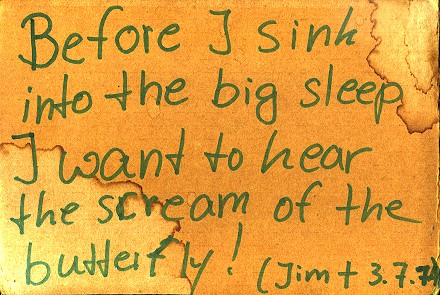 Before I sink
into the big sleep
I want to hear
the scream of the
butterfly! (Jim † 3.7.71)